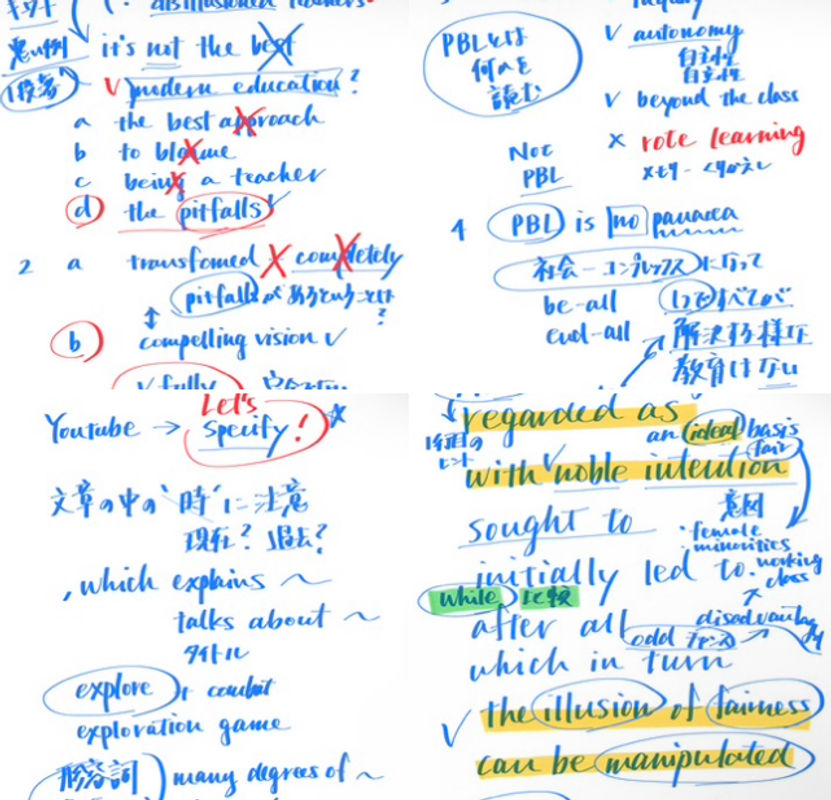 it's not the best
悪い例
modern education?
a the best approach
b to blame
c being a teacher
d the pitfalls
2 a transfomed completely
pitfallsがあるということは?
b compelling vision
fully
autonomy
自主性
自立性
PBLとは
何かを
読む
beyond the class
× rote learning
Not
PBL
4 PBL is no panacea
社会-コンプレックスになって
be-all
end-all
1つですべてが
解決する様な
教育はない
Let's
Youtube → specify!
文章の中の"時"に注意
現在? 過去?
, which explains ~
talks about ~
タイトル
explore
exploration game
形容詞 many degrees of ~
regarded as
an ideal basis
fair
1行目の
ヒント
with noble intention
意図
sought to
・female
minorities
working
class
initially led to
while 比較
after all
odd
disadvantage
which in turn
the illusion of fairness
can be manipulated